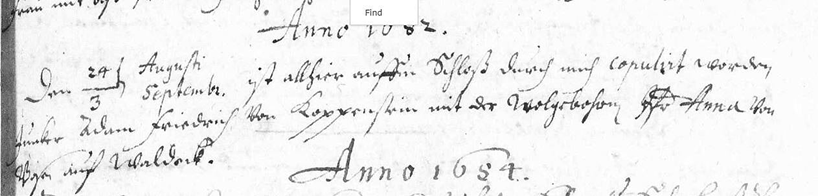 Find
Anno 1682.
Den 24/3 Augusti Septembr. ist allhier auffm Schloß durch mich copulirt worden
Juncker Adam Friedrich von Koppenstein mit der Wolgebohrn Anna von
auff Waldeck.
Anno 1684.